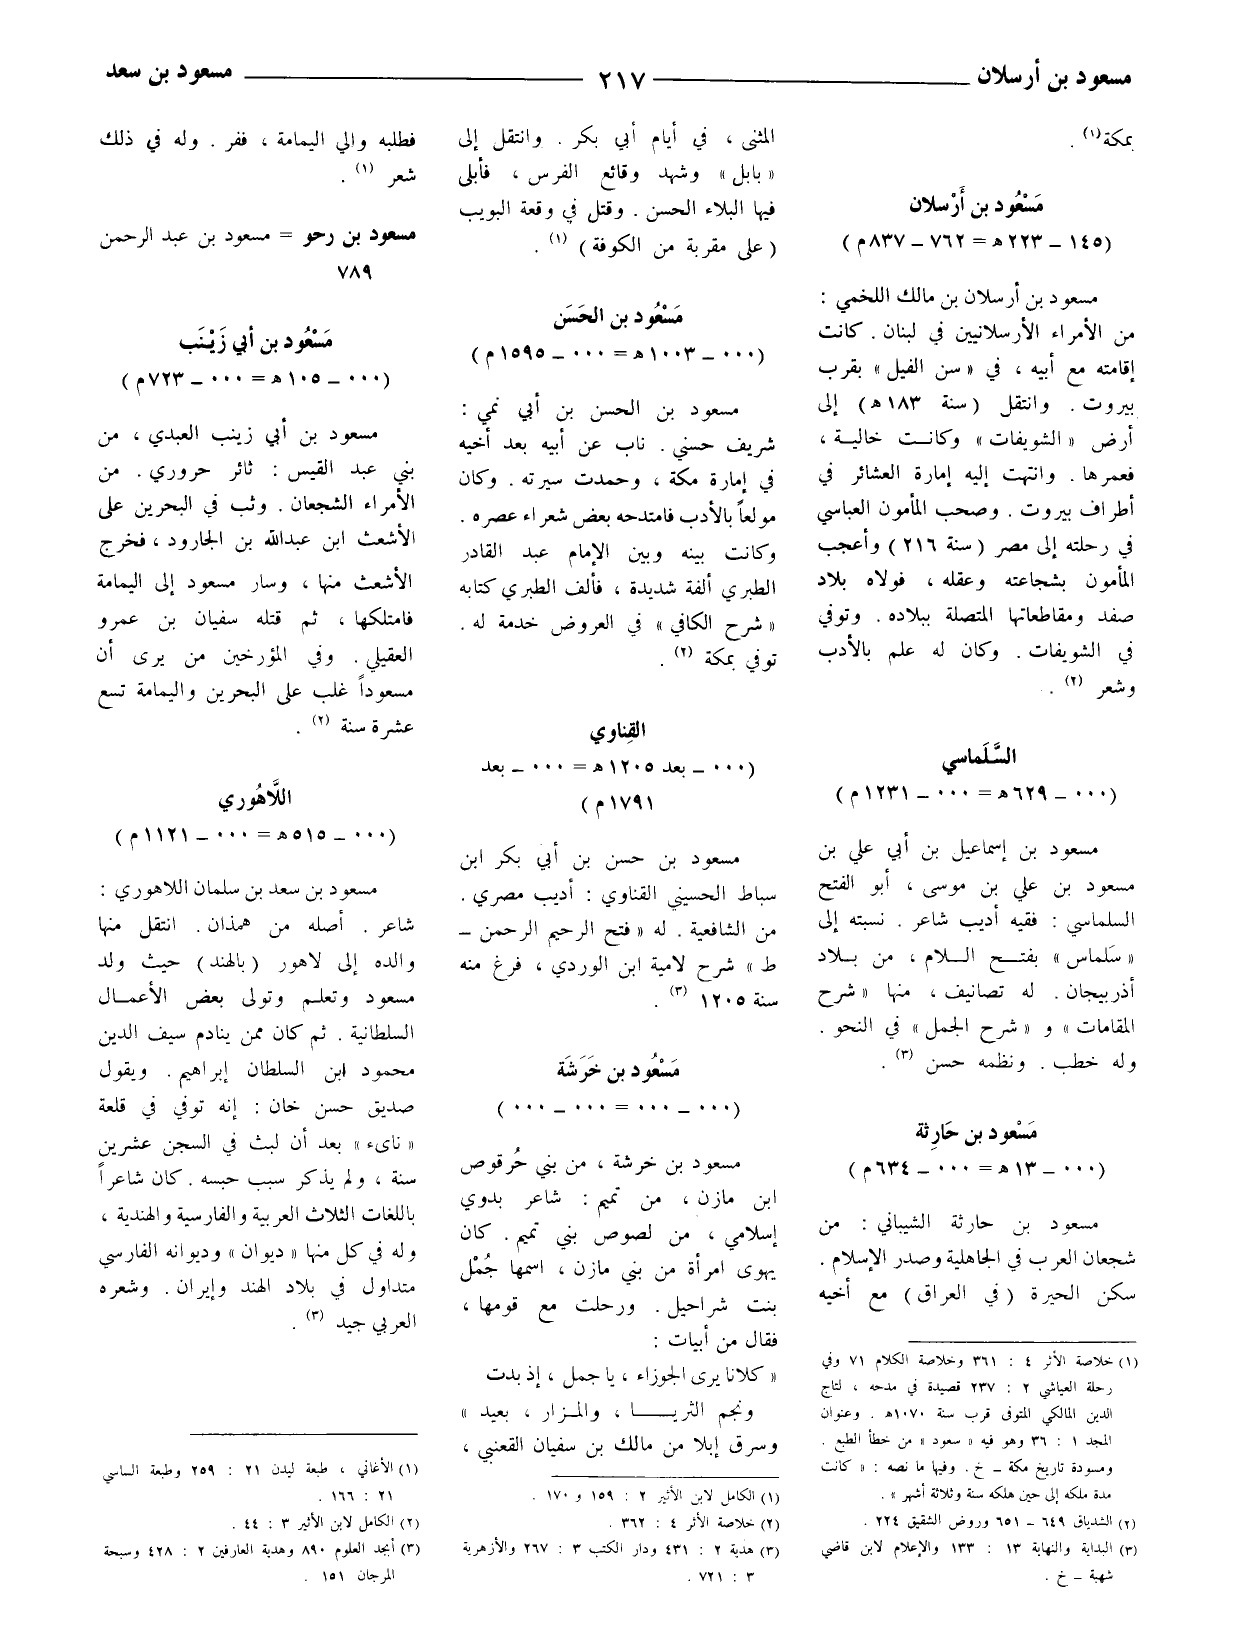 مسعود بن أرسلان ـــــــ ٢١٧ ـــــــ مسعود بن سعد
بمكة (١) .
مَسْعُود بن أَرْسلان
(١٤٥ – ٢٢٣ ه‍ = ٧٦٢ – ٨٣٧ م)
مسعود بن أرسلان بن مالك اللخمي :
من الأمراء الأرسلانيين في لبنان . كانت
إقامته مع أبيه ، في « سن الفيل » بقرب
بيروت . وانتقل (سنة ١٨٣ ه‍) إلى
أرض « الشويفات » وكانت خالية ،
فعمرها . وانتهت إليه إمارة العشائر في
أطراف بيروت . وصحب المأمون العباسي
في رحلته إلى مصر (سنة ٢١٦) وأعجب
المأمون بشجاعته وعقله ، فولاه بلاد
صفد ومقاطعاتها المتصلة ببلاده . وتوفي
في الشويفات . وكان له علم بالأدب
وشعر (٢) .
السَّلَماسي
(٠٠٠ – ٦٢٩ ه‍ = ٠٠٠ – ١٢٣١ م)
مسعود بن إسماعيل بن أبي علي بن
مسعود بن علي بن موسى ، أبو الفتح
السلماسي : فقيه أديب شاعر . نسبته إلى
« سَلماس » بفتح السلام ، من بلاد
أذربيجان . له تصانيف ، منها « شرح
المقامات » و « شرح الجمل » في النحو .
وله خطب . ونظمه حسن (٣) .
مَسْعود بن حَارِثة
(٠٠٠ – ١٣ ه‍ = ٠٠٠ – ٦٣٤ م)
مسعود بن حارثة الشيباني : من
شجعان العرب في الجاهلية وصدر الإسلام .
سكن الحيرة (في العراق) مع أخيه
(١) خلاصة الأثر ٤ : ٣٦١ وخلاصة الكلام ٧١ وفي
رحلة العياشي ٢ : ٢٣٧ قصيدة في مدحه ، لتاج
الدين المالكي المتوفى قرب سنة ١٠٧٠ه‍ . وعنوان
المجد ١ : ٣٦ وهو فيه « سعود » من خطأ الطبع .
ومسودة تاريخ مكة – خ . وفيها ما نصه : « كانت
مدة ملكه إلى حين هلكه سنة وثلاثة أشهر » .
(٢) الشدياق ٦٤٩ – ٦٥١ وروض الشقيق ٢٢٤ .
(٣) البداية والنهاية ١٣ : ١٣٣ والإعلام لابن قاضي
شهبة – خ .
المثنى ، في أيام أبي بكر . وانتقل إلى
« بابل » وشهد وقائع الفرس ، فأبلى
فيها البلاء الحسن . وقتل في وقعة البويب
(على مقربة من الكوفة) (١) .
مَسْعُود بن الحَسَن
(٠٠٠ – ١٠٠٣ ه‍ = ٠٠٠ – ١٥٩٥ م)
مسعود بن الحسن بن أبي نمي :
شريف حسني . ناب عن أبيه بعد أخيه
في إمارة مكة ، وحمدت سيرته . وكان
مولعاً بالأدب فامتدحه بعض شعراء عصره .
وكانت بينه وبين الإمام عبد القادر
الطبري ألفة شديدة ، فألف الطبري كتابه
« شرح الكافي » في العروض خدمة له .
توفي بمكة (٢) .
القِناوي
(٠٠٠ – بعد ١٢٠٥ ه‍ = ٠٠٠ – بعد
١٧٩١ م)
مسعود بن حسن بن أبي بكر ابن
سباط الحسيني القناوي : أديب مصري .
من الشافعية . له « فتح الرحيم الرحمن –
ط » شرح لامية ابن الوردي ، فرغ منه
سنة ١٢٠٥ (٣) .
مَسْعُود بن خَرَشَة
(٠٠٠ – ٠٠٠ = ٠٠٠ – ٠٠٠)
مسعود بن خرشة ، من بني حُرقوص
ابن مازن ، من تميم : شاعر بدوي
إسلامي ، من لصوص بني تميم . كان
يهوى امرأة من بني مازن ، اسمها جُمْل
بنت شراحيل . ورحلت مع قومها ،
فقال من أبيات :
« كلانا يرى الجوزاء ، يا جمل ، إذ بدت
ونجم الثريـــا ، والمـزار ، بعيد »
وسرق إبلا من مالك بن سفيان القعنبي ،
(١) الكامل لابن الأثير ٢ : ١٥٩ و ١٧٠ .
(٢) خلاصة الأثر ٤ : ٣٦٢ .
(٣) هدية ٢ : ٤٣١ ودار الكتب ٣ : ٢٦٧ والأزهرية
٣ : ٧٢١ .
فطلبه والي اليمامة ، ففر . وله في ذلك
شعر (١) .
مسعود بن رحو = مسعود بن عبد الرحمن
٧٨٩
مَسْعُود بن أبي زَيْنَب
(٠٠٠ – ١٠٥ ه‍ = ٠٠٠ – ٧٢٣ م)
مسعود بن أبي زينب العبدي ، من
بني عبد القيس : ثائر حروري . من
الأمراء الشجعان . وثب في البحرين على
الأشعث ابن عبدالله بن الجارود ، فخرج
الأشعث منها ، وسار مسعود إلى اليمامة
فامتلكها ، ثم قتله سفيان بن عمرو
العقيلي . وفي المؤرخين من يرى أن
مسعوداً غلب على البحرين واليمامة تسع
عشرة سنة (٢) .
اللَّاهُوري
(٠٠٠ – ٥١٥ ه‍ = ٠٠٠ – ١١٢١ م)
مسعود بن سعد بن سلمان اللاهوري :
شاعر . أصله من همذان . انتقل منها
والده إلى لاهور (بالهند) حيث ولد
مسعود وتعلم وتولى بعض الأعمال
السلطانية . ثم كان ممن ينادم سيف الدين
محمود ابن السلطان إبراهيم . ويقول
صديق حسن خان : إنه توفي في قلعة
« نايء » بعد أن لبث في السجن عشرين
سنة ، ولم يذكر سبب حبسه . كان شاعراً
باللغات الثلاث العربية والفارسية والهندية ،
وله في كل منها « ديوان » وديوانه الفارسي
متداول في بلاد الهند وإيران . وشعره
العربي جيد (٣) .
(١) الأغاني ، طبعة ليدن ٢١ : ٢٥٩ وطبعة الساسي
٢١ : ١٦٦ .
(٢) الكامل لابن الأثير ٣ : ٤٤ .
(٣) أبجد العلوم ٨٩٠ وهدية العارفين ٢ : ٤٢٨ وسبحة
المرجان ١٥١ .